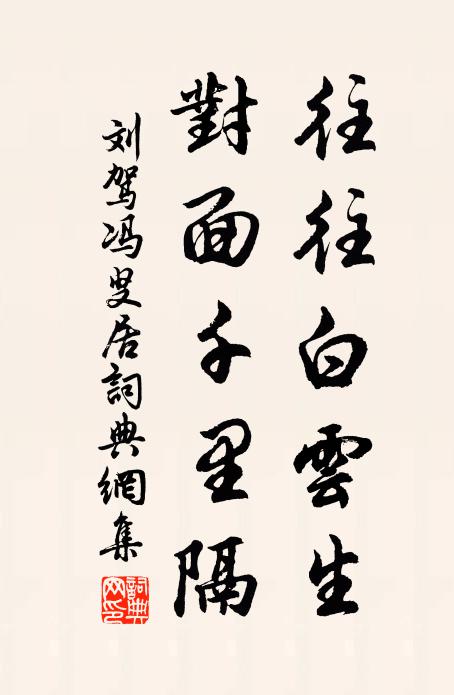 往往白雲生
對面千里隔
刘驾冯叟居詞典網集
詞典
网印